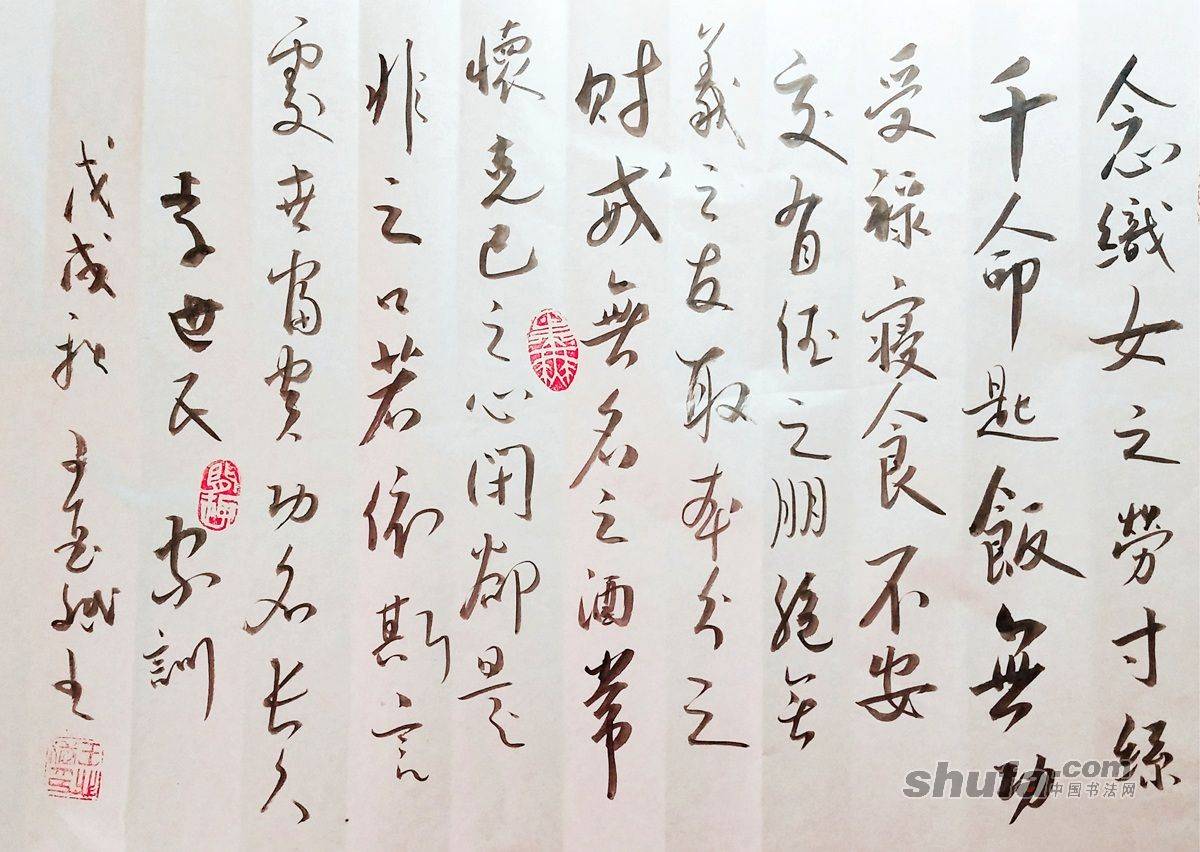 念織女之勞寸絲
千命匙飯無功
受祿寢食不安
交有德之朋絕無
義之友取本分之
財戒無名之酒常
懷克己之心閉卻是
非之口若依斯言
處世富貴功名長久
李世民家訓
戊戌秋
shufa.com
中国书法网